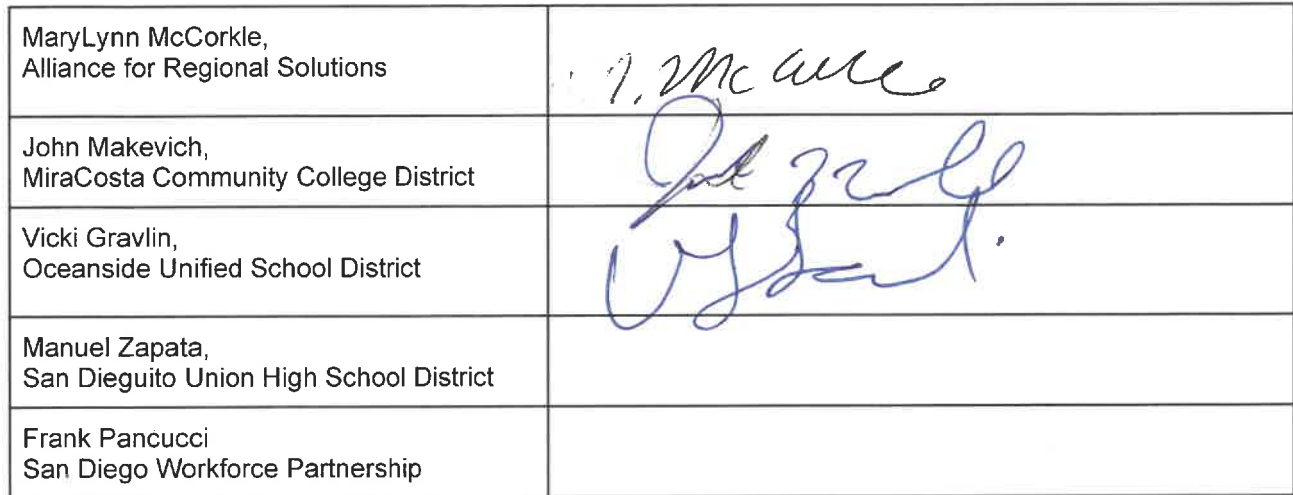 MaryLynn McCorkle,
Alliance for Regional Solutions
John Makevich,
MiraCosta Community College District
Vicki Gravlin,
Oceanside Unified School District
Manuel Zapata,
San Dieguito Union High School District
Frank Pancucci
San Diego Workforce Partnership